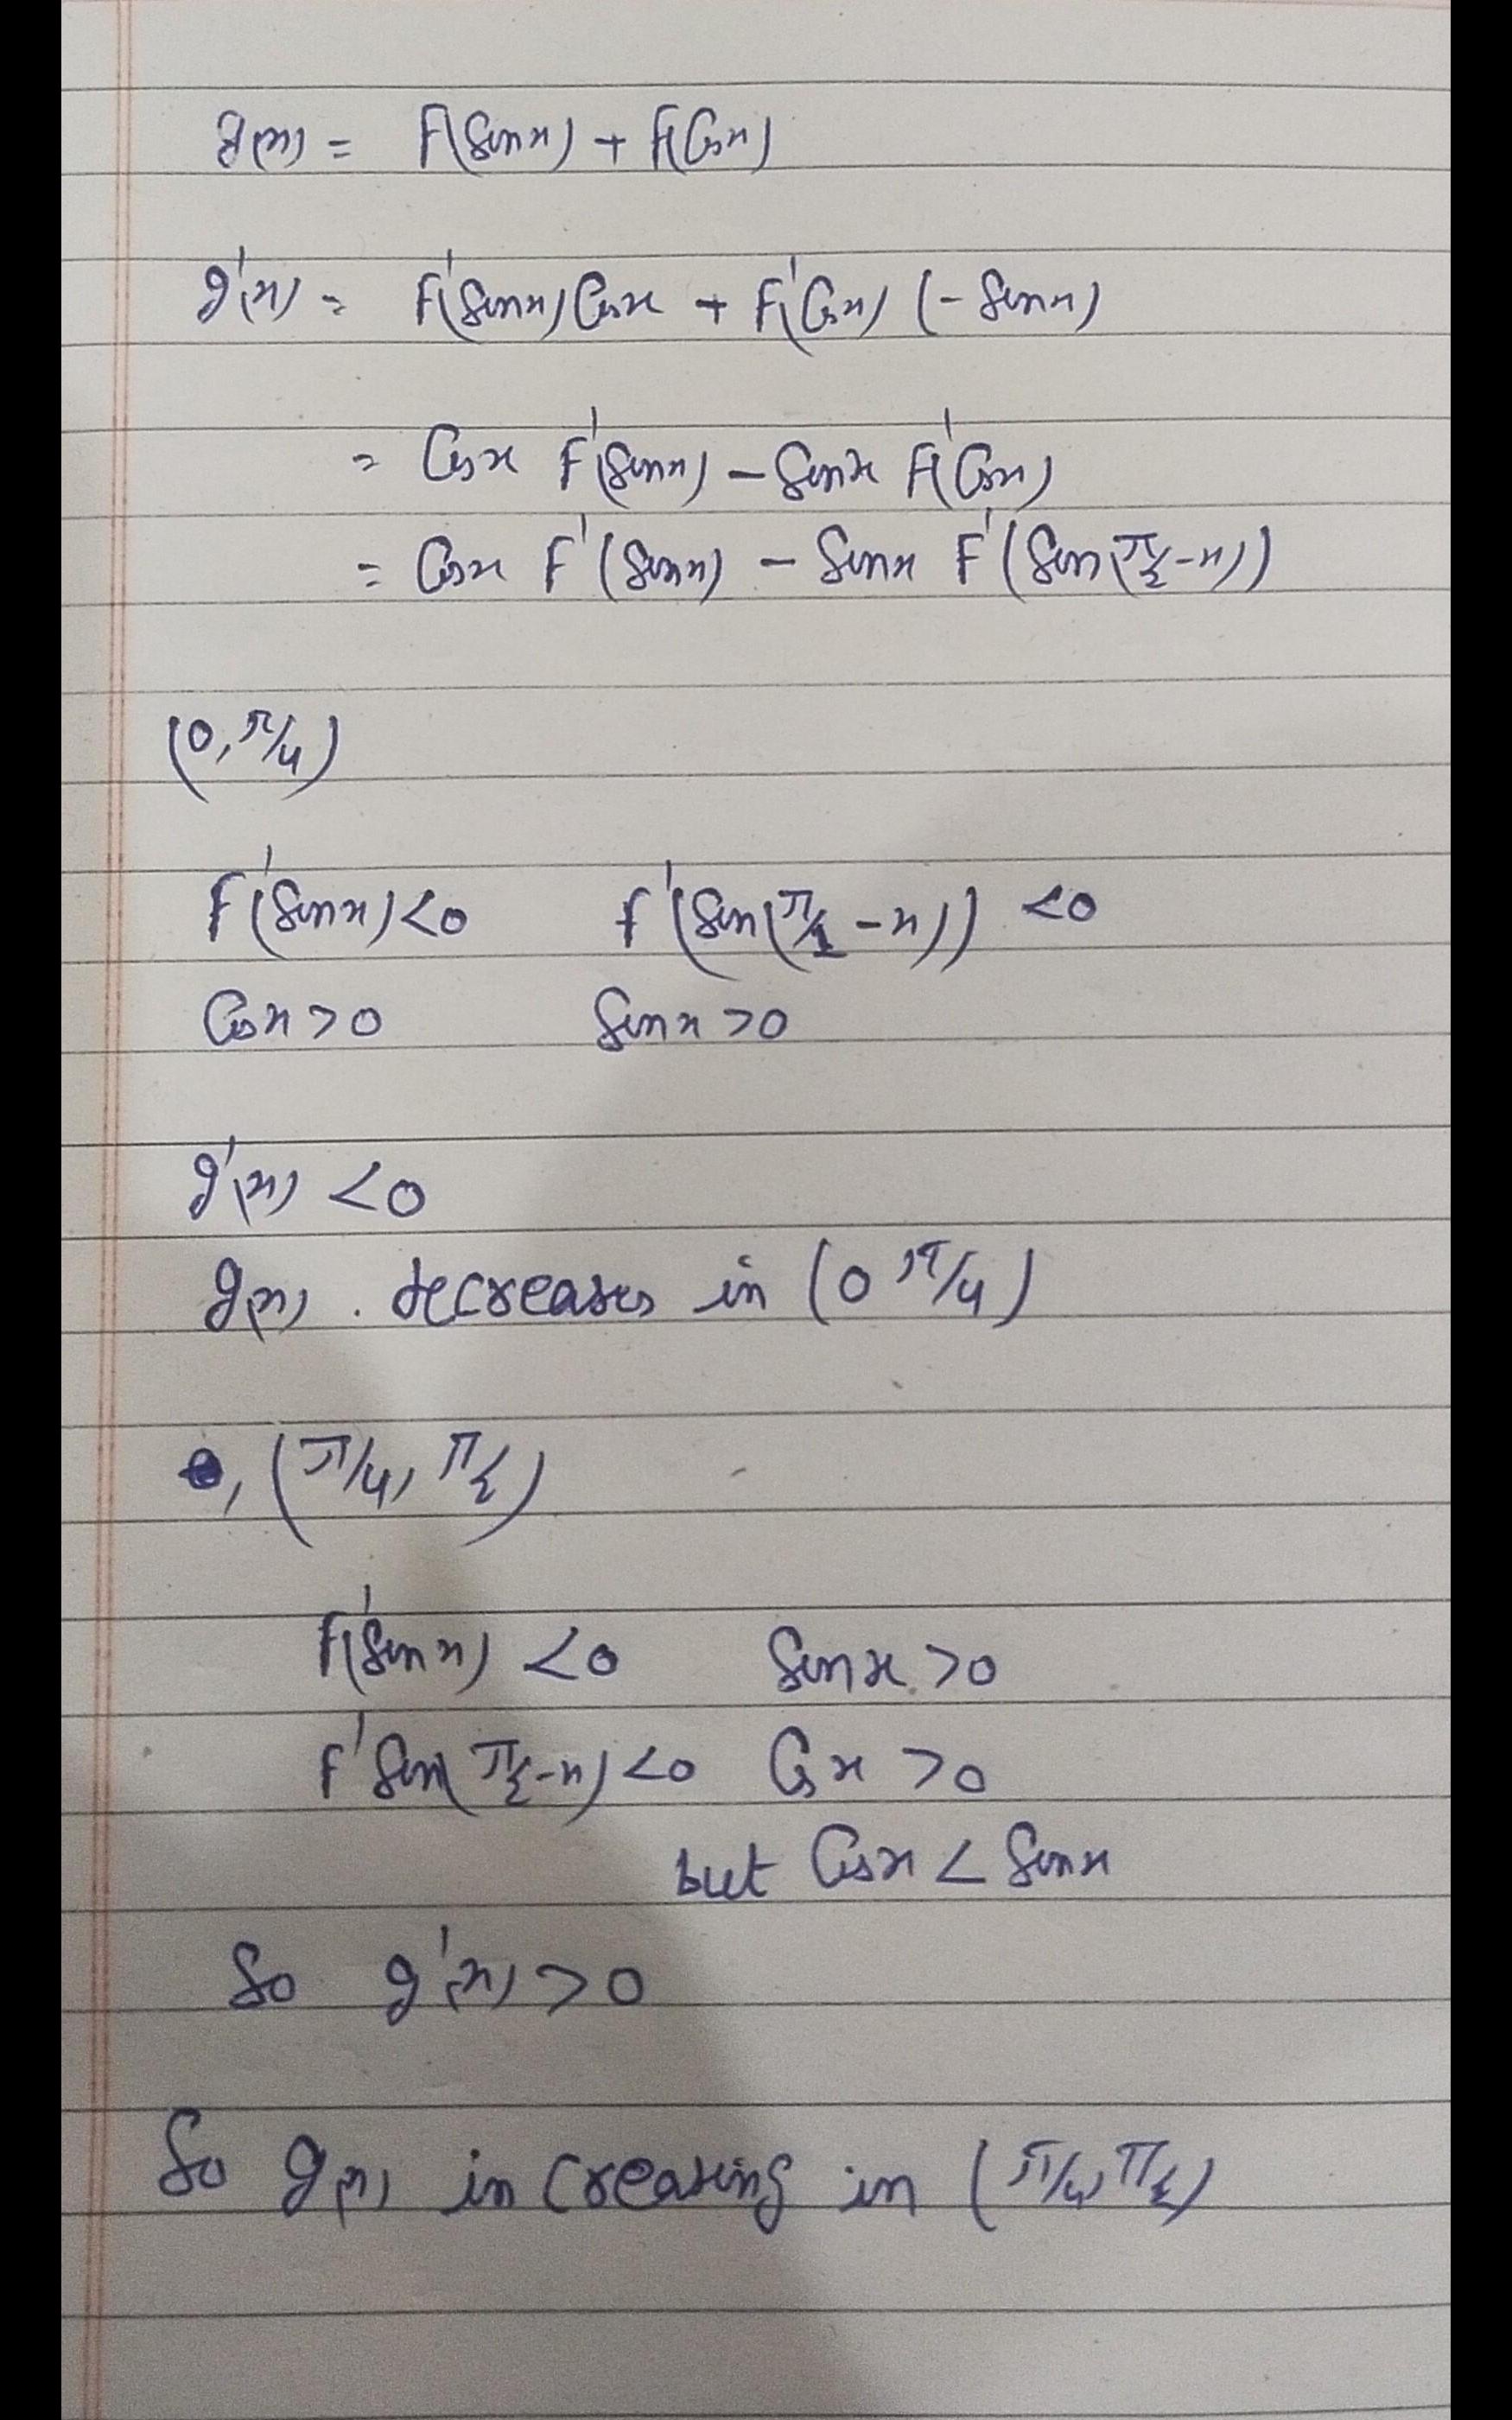 g(x) = F(Sinx) + F(Cosx)
g'(x) = F'(Sinx) Cosx + F'(Cosx) (- Sinx)
= Cosx F'(Sinx) - Sinx F'(Cosx)
= Cosx F'(Sinx) - Sinx F'(Sin(π/2-x))
(0, π/4)
F'(Sinx) <0 f'(Sin(π/2 -x)) <0
Cosx >0 Sinx >0
g'(x) <0
g(x) . decreases in (0 π/4)
, (π/4, π/2)
F'(Sinx) <0 Sinx >0
F' Sin(π/2-x) <0 Cosx >0
but Cosx < Sinx
So g'(x) >0
So g(x) increasing in (π/4, π/2)